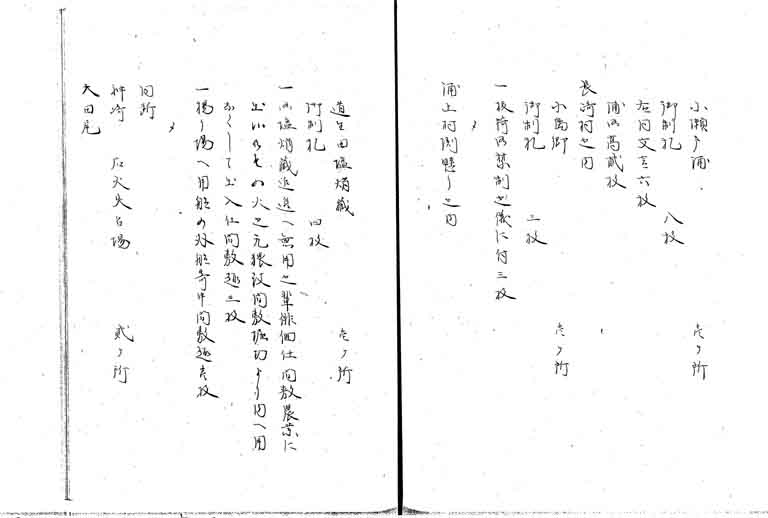 小瀬戸浦 壱ヶ所
御制札 八枚
右同文言六枚
浦御高弐枚
長崎村之内
小島郷 壱ヶ所
御制札 三枚
一抜荷御禁制之儀に付三枚
〆
浦上村渕懸り之内
道生田塩焇蔵 壱ヶ所
御制札 四枚
一御塩焇蔵近辺へ無用之輩徘徊仕間敷農業に
出候ものハ火之元猥成間敷堀切より内へ用
なくして出入仕間敷趣三枚
一揚り場へ用船の外船寄申間敷趣壱枚
〆
同所
神崎 石火矢台場 弐ヶ所
大田尾